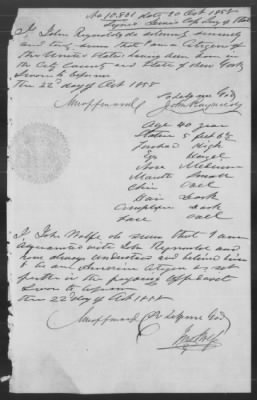 No 10.821 Dated 20 Oct 1858
I John Reynolds do solemnly sincerely
and truly swear that I am a Citizen of
the United States being born in
the City County and State of New York
Sworn to before
this 22d day of Oct 1858
So help me God
John Reynolds
Age 40 year
Stature 5 feet 6
Forehead High
Eye Hazel
Nose Medium
Mouth Small
Chin Oval
Hair Dark
Complexion Dark
Face Oval
I John Wolfe do swear that I am
acquainted with John Reynolds and
have always understood and believe him
to be an American Citizen as set
forth in the
Sworn to before
this 22d day of Oct 1858
So help me God
Jno Wolfe